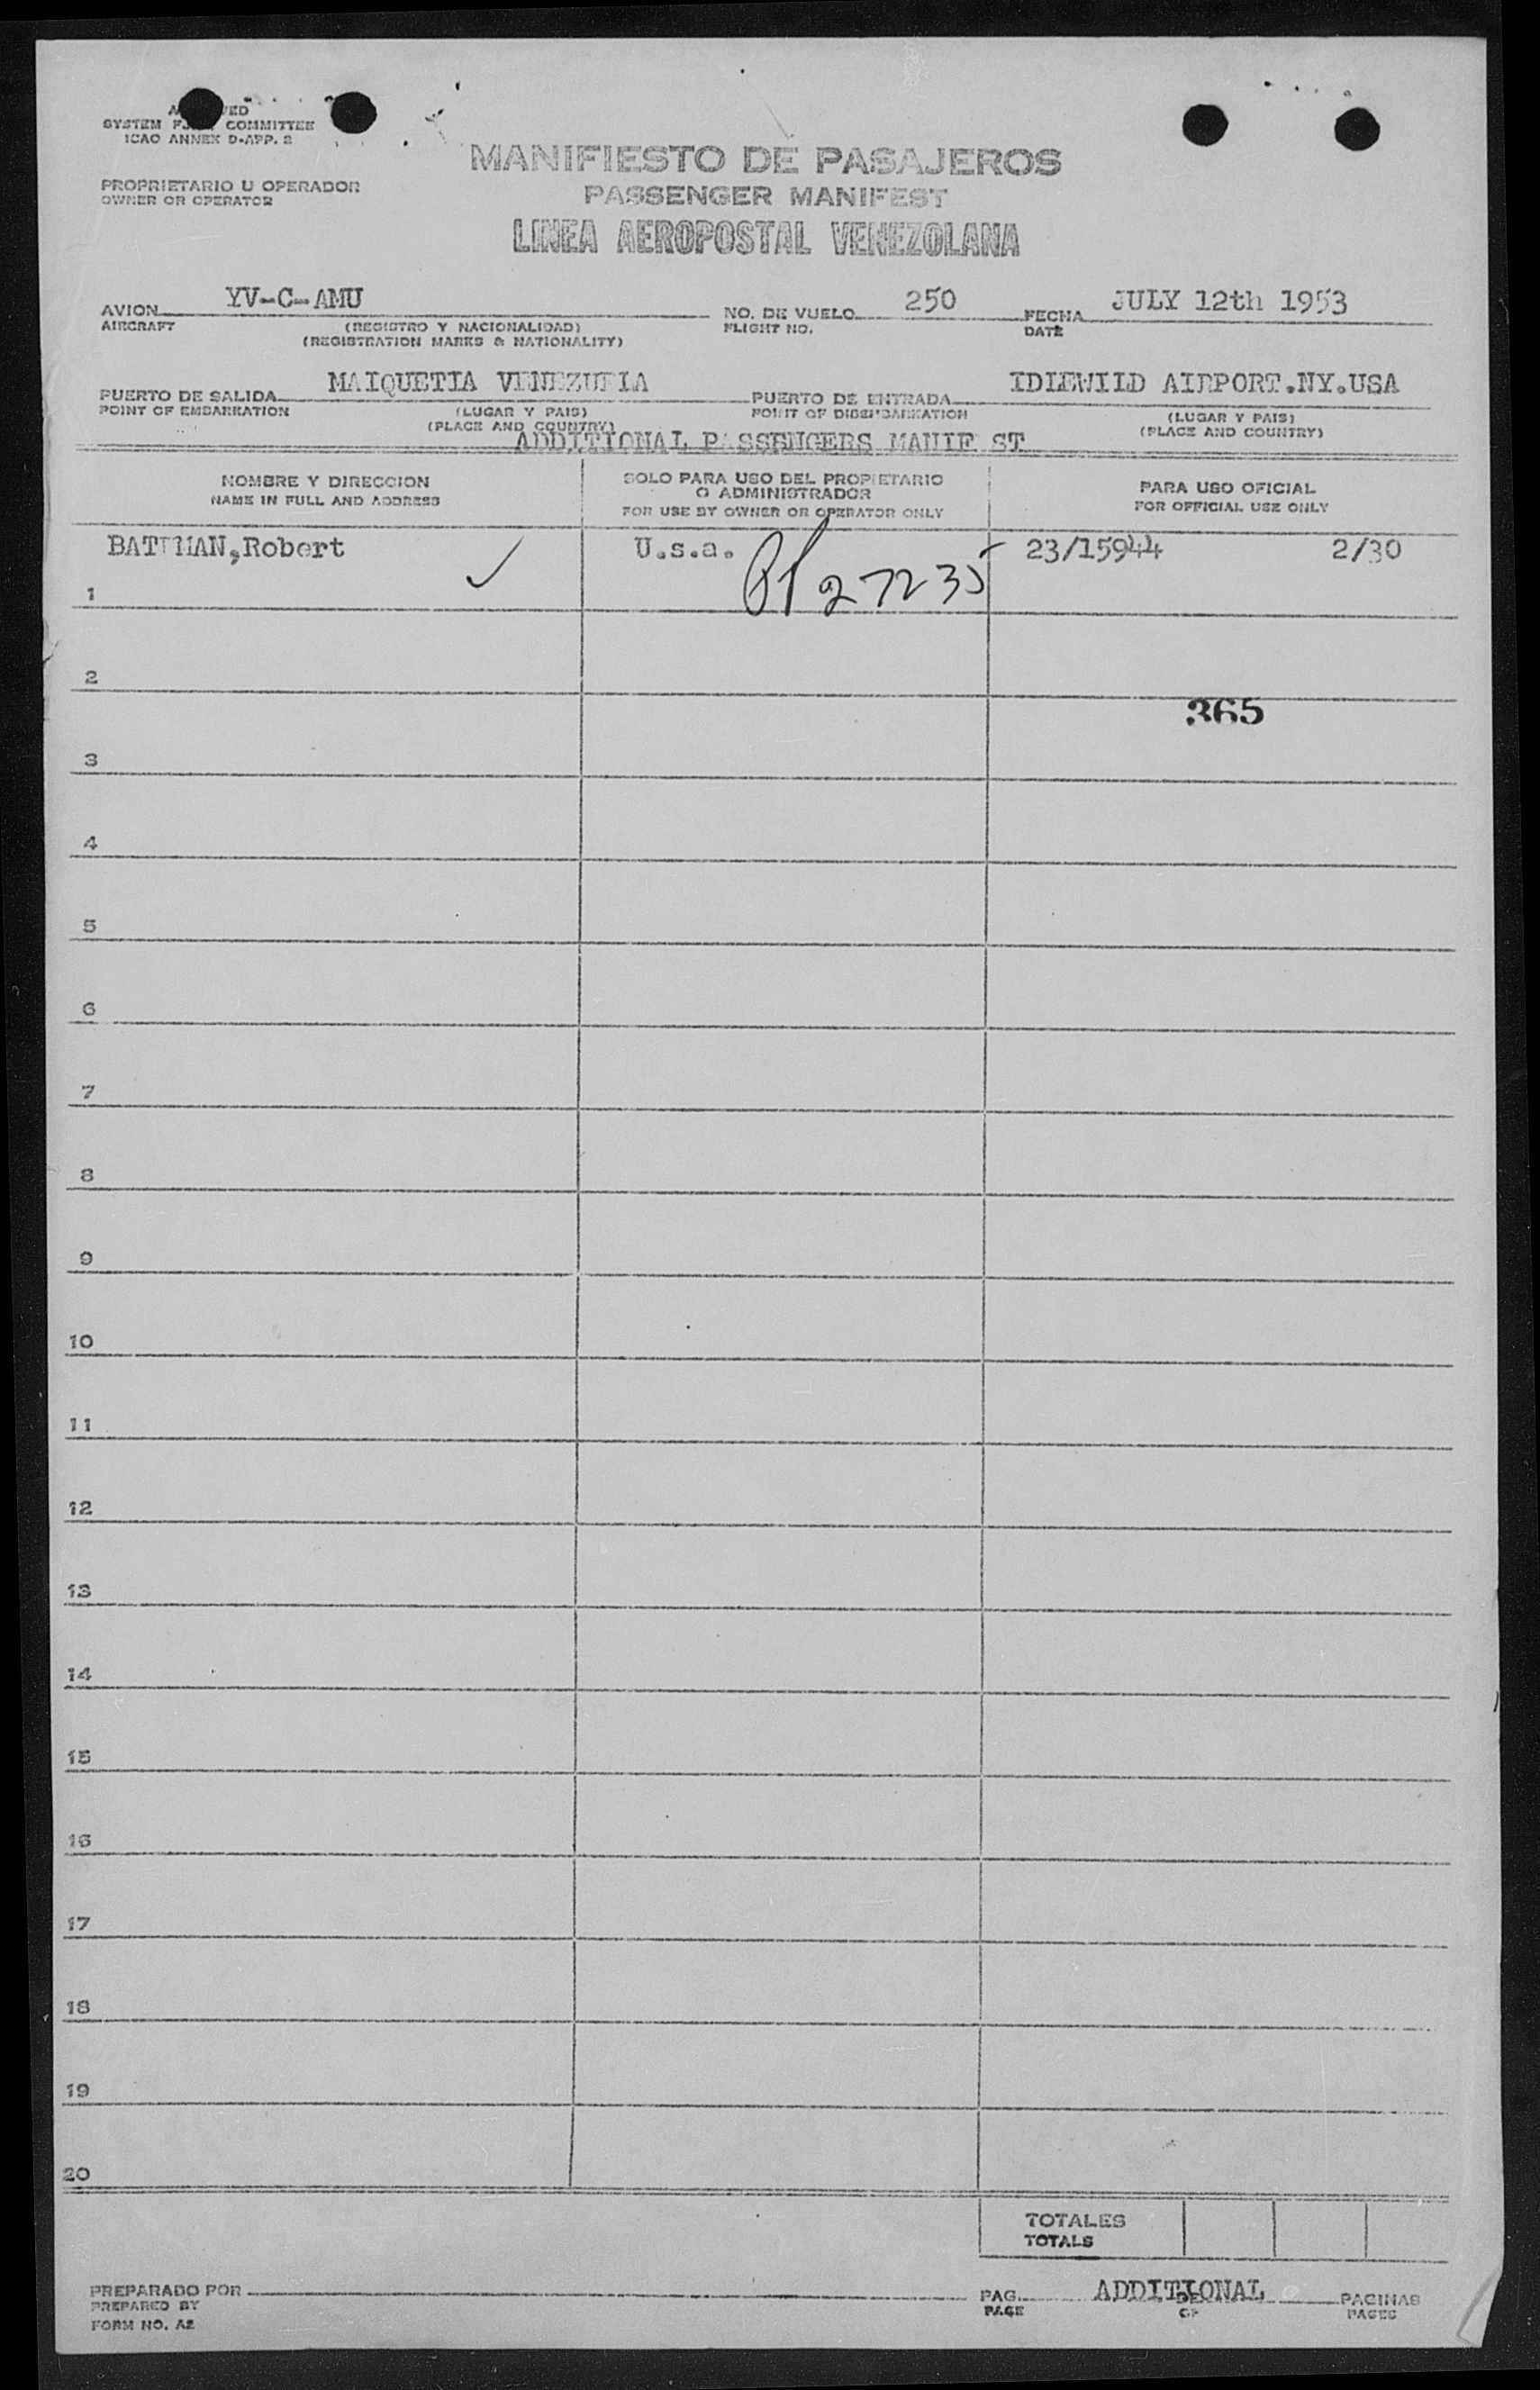 SYSTEM COMMITTEE
ICAO ANNEX 9-APP. 2
MANIFIESTO DE PASAJEROS
PROPRIETARIO U OPERADOR
OWNER OR OPERATOR
PASSENGER MANIFEST
LINEA AEROPOSTAL VENEZOLANA
AVION YV-C-AMU NO. DE VUELO 250 FECHA JULY 12th 1953
AIRCRAFT (REGISTRO Y NACIONALIDAD) FLIGHT NO. DATE
(REGISTRATION MARKS & NATIONALITY)
PUERTO DE SALIDA MAIQUETIA VENEZUELA PUERTO DE ENTRADA IDLEWILD AIRPORT.NY.USA
POINT OF EMBARKATION (LUGAR Y PAIS) POINT OF DISEMBARKATION (LUGAR Y PAIS)
(PLACE AND COUNTRY) (PLACE AND COUNTRY)
ADDITIONAL PASSENGERS MANIF ST
NOMBRE Y DIRECCION SOLO PARA USO DEL PROPIETARIO O ADMINISTRADOR PARA USO OFICIAL
NAME IN FULL AND ADDRESS FOR USE BY OWNER OR OPERATOR ONLY FOR OFFICIAL USE ONLY
BATEMAN,Robert U.s.a. 23/15944 2/30
1 27235
2
365
3
4
5
6
7
8
9
10
11
12
13
14
15
16
17
18
19
20
TOTALES
TOTALS
PREPARADO POR PAG. ADDITIONAL DE PAGINAS
PREPARED BY PAGE OF PAGES
FORM NO. A2